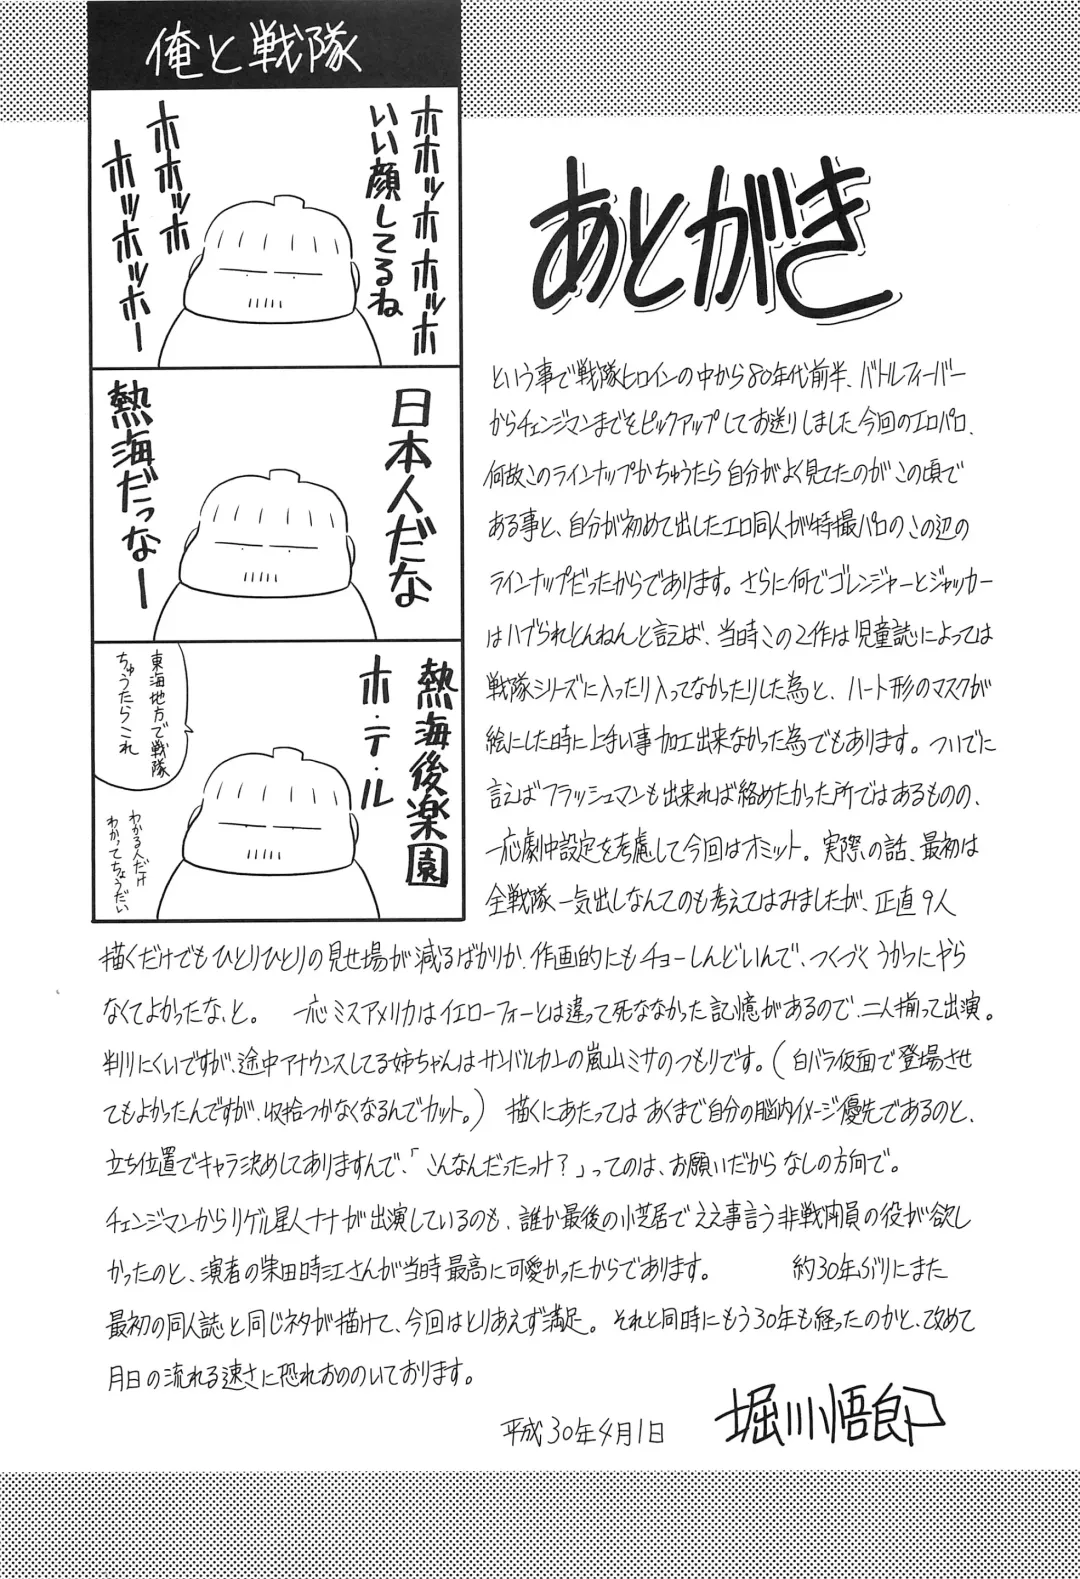 俺と戦隊
ホホッホ ホッホ
いい顔してるね
ホホッホ
ホッホッホー
日本人だな
熱海だっなー
熱海後楽園
ホ・テ・ル
東海地方で戦隊
ちゅうたらこれ
わかる人だけ
わかってちょうだい
あとがき
という事で戦隊ヒロインの中から80年代前半、バトルフィーバー
からチェンジマンまでをピックアップしてお送りしました今回のエロパロ、
何故このラインナップかちゅうたら自分がよく見てたのがこの頃で
ある事と、自分が初めて出したエロ同人が特撮パロのこの辺の
ラインナップだったからであります。さらに何でゴレンジャーとジャッカー
はハブられとんねんと言えば、当時この2作は児童誌によっては
戦隊シリーズに入ったり入ってなかったりした為と、ハート形のマスクが
絵にした時に上手い事加工出来なかった為でもあります。ついでに
言えばフラッシュマンも出来れば絡めたかった所ではあるものの、
一応劇中設定を考慮して今回はオミット。実際の話、最初は
全戦隊一気出しなんてのも考えてはみましたが、正直9人
描くだけでもひとりひとりの見せ場が減るばかりか、作画的にもチョーしんどいんで、つくづくうかつにやら
なくてよかったな、と。 一応ミスアメリカはイエローフォーとは違って死ななかった記憶があるので、二人揃って出演。
判りにくいですが、途中アナウンスしてる姉ちゃんはサンバルカンの嵐山ミサのつもりです。(白バラ仮面で登場させ
てもよかったんですが、収拾つかなくなるんでカット。) 描くにあたってはあくまで自分の脳内イメージ優先であるのと、
立ち位置でキャラ決めしてありますんで、「こんなんだったっけ?」ってのは、お願いだからなしの方向で。
チェンジマンからリゲル星人ナナが出演しているのも、誰か最後の小芝居でええ事言う非戦闘員の役が欲し
かったのと、演者の柴田時江さんが当時最高に可愛かったからであります。 約30年ぶりにまた
最初の同人誌と同じネタが描けて、今回はとりあえず満足。それと同時にもう30年も経ったのかと、改めて
月日の流れる速さに恐れおののいております。
平成30年4月1日
堀川悟郎